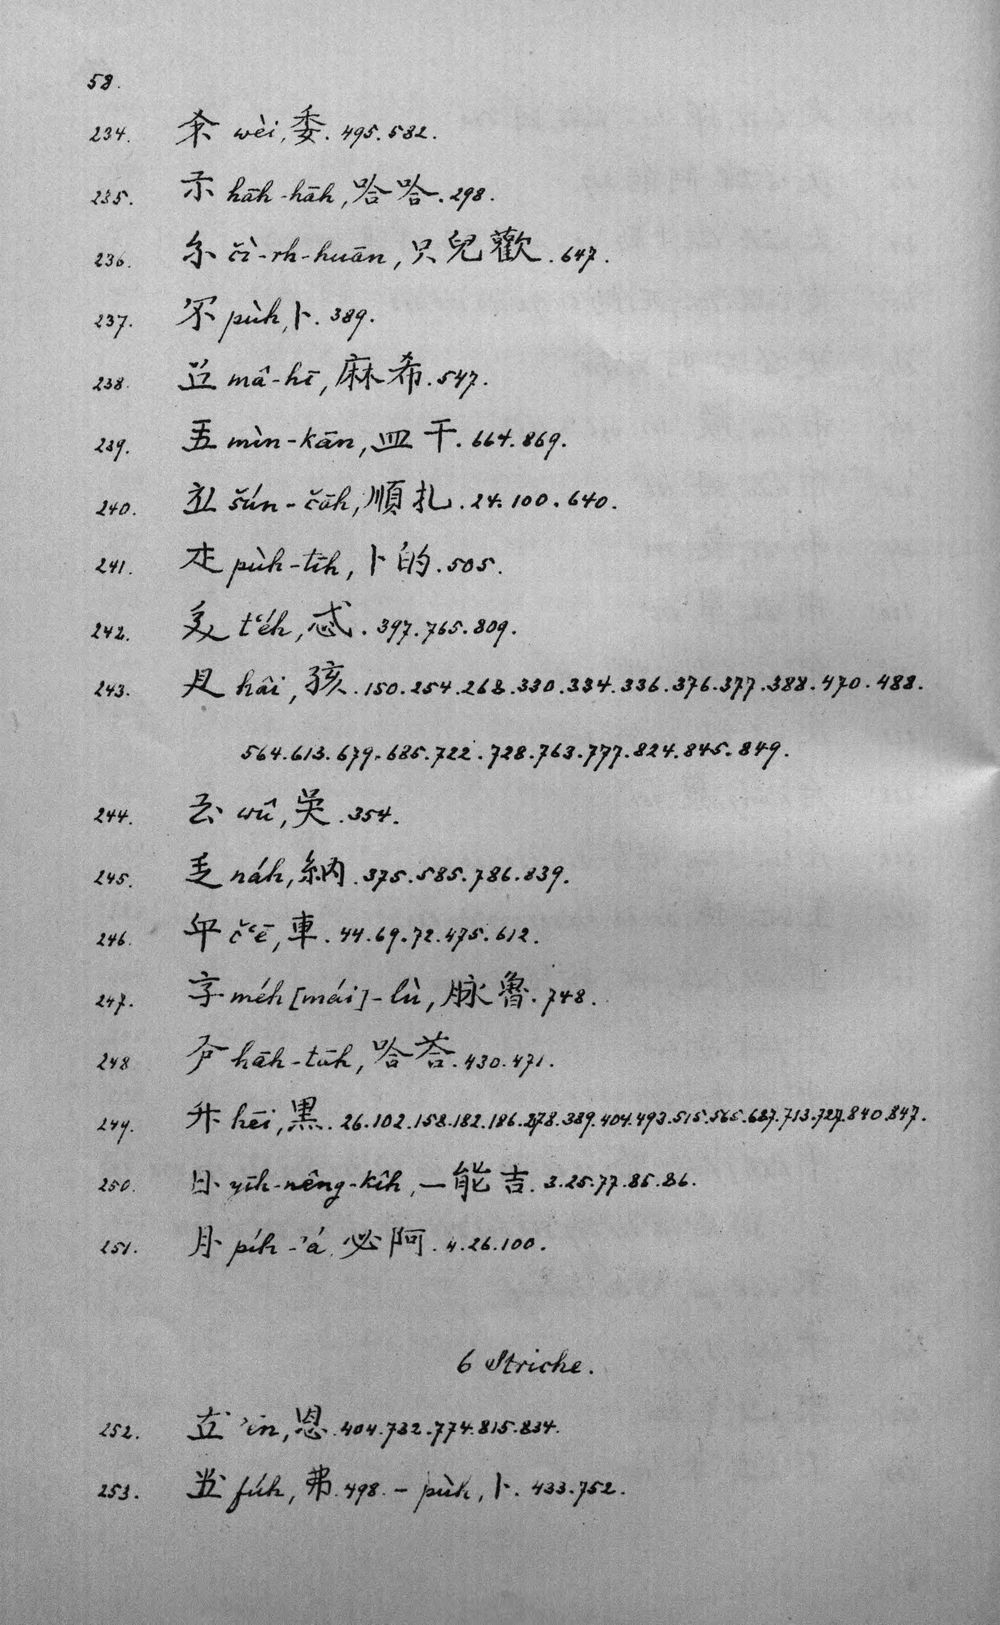 58.
234. wèi, 委. 495. 582.
235. hāh-hāh, 哈哈. 298.
236. čì-rh-huān, 只兒歡. 647.
237. pùh, 卜. 389.
238. mâ-hī, 麻希. 547.
239. mìn-kān, 皿干. 664. 869.
240. šún-čāh, 順扎. 24. 100. 640.
241. pùh-tīh, 卜的. 505.
242. t‘éh, 忒. 397. 765. 809.
243. hâi, 孩. 150. 254. 268. 330. 334. 336. 376. 377. 388. 470. 488.
564. 613. 679. 685. 722. 728. 763. 777. 824. 845. 849.
244. wû, 吴. 354.
245. náh, 納. 375. 585. 786. 839.
246. č‘ē, 車. 44. 69. 72. 475. 612.
247. méh [mái]-lù, 脉魯. 748.
248. hāh-tāh, 哈荅. 430. 471.
249. hēi, 黒. 26. 102. 158. 182. 186. 278. 389. 404. 493. 515. 565. 687. 713. 727. 840. 847.
250. yīh-nêng-kîh, 一能吉. 3. 25. 77. 85. 86.
251. píh-’á, 必阿. 4. 26. 100.
6 Striche.
252. ’ēn, 恩. 404. 732. 774. 815. 834.
253. fúh, 弗. 498. – pùh, 卜. 433. 752.